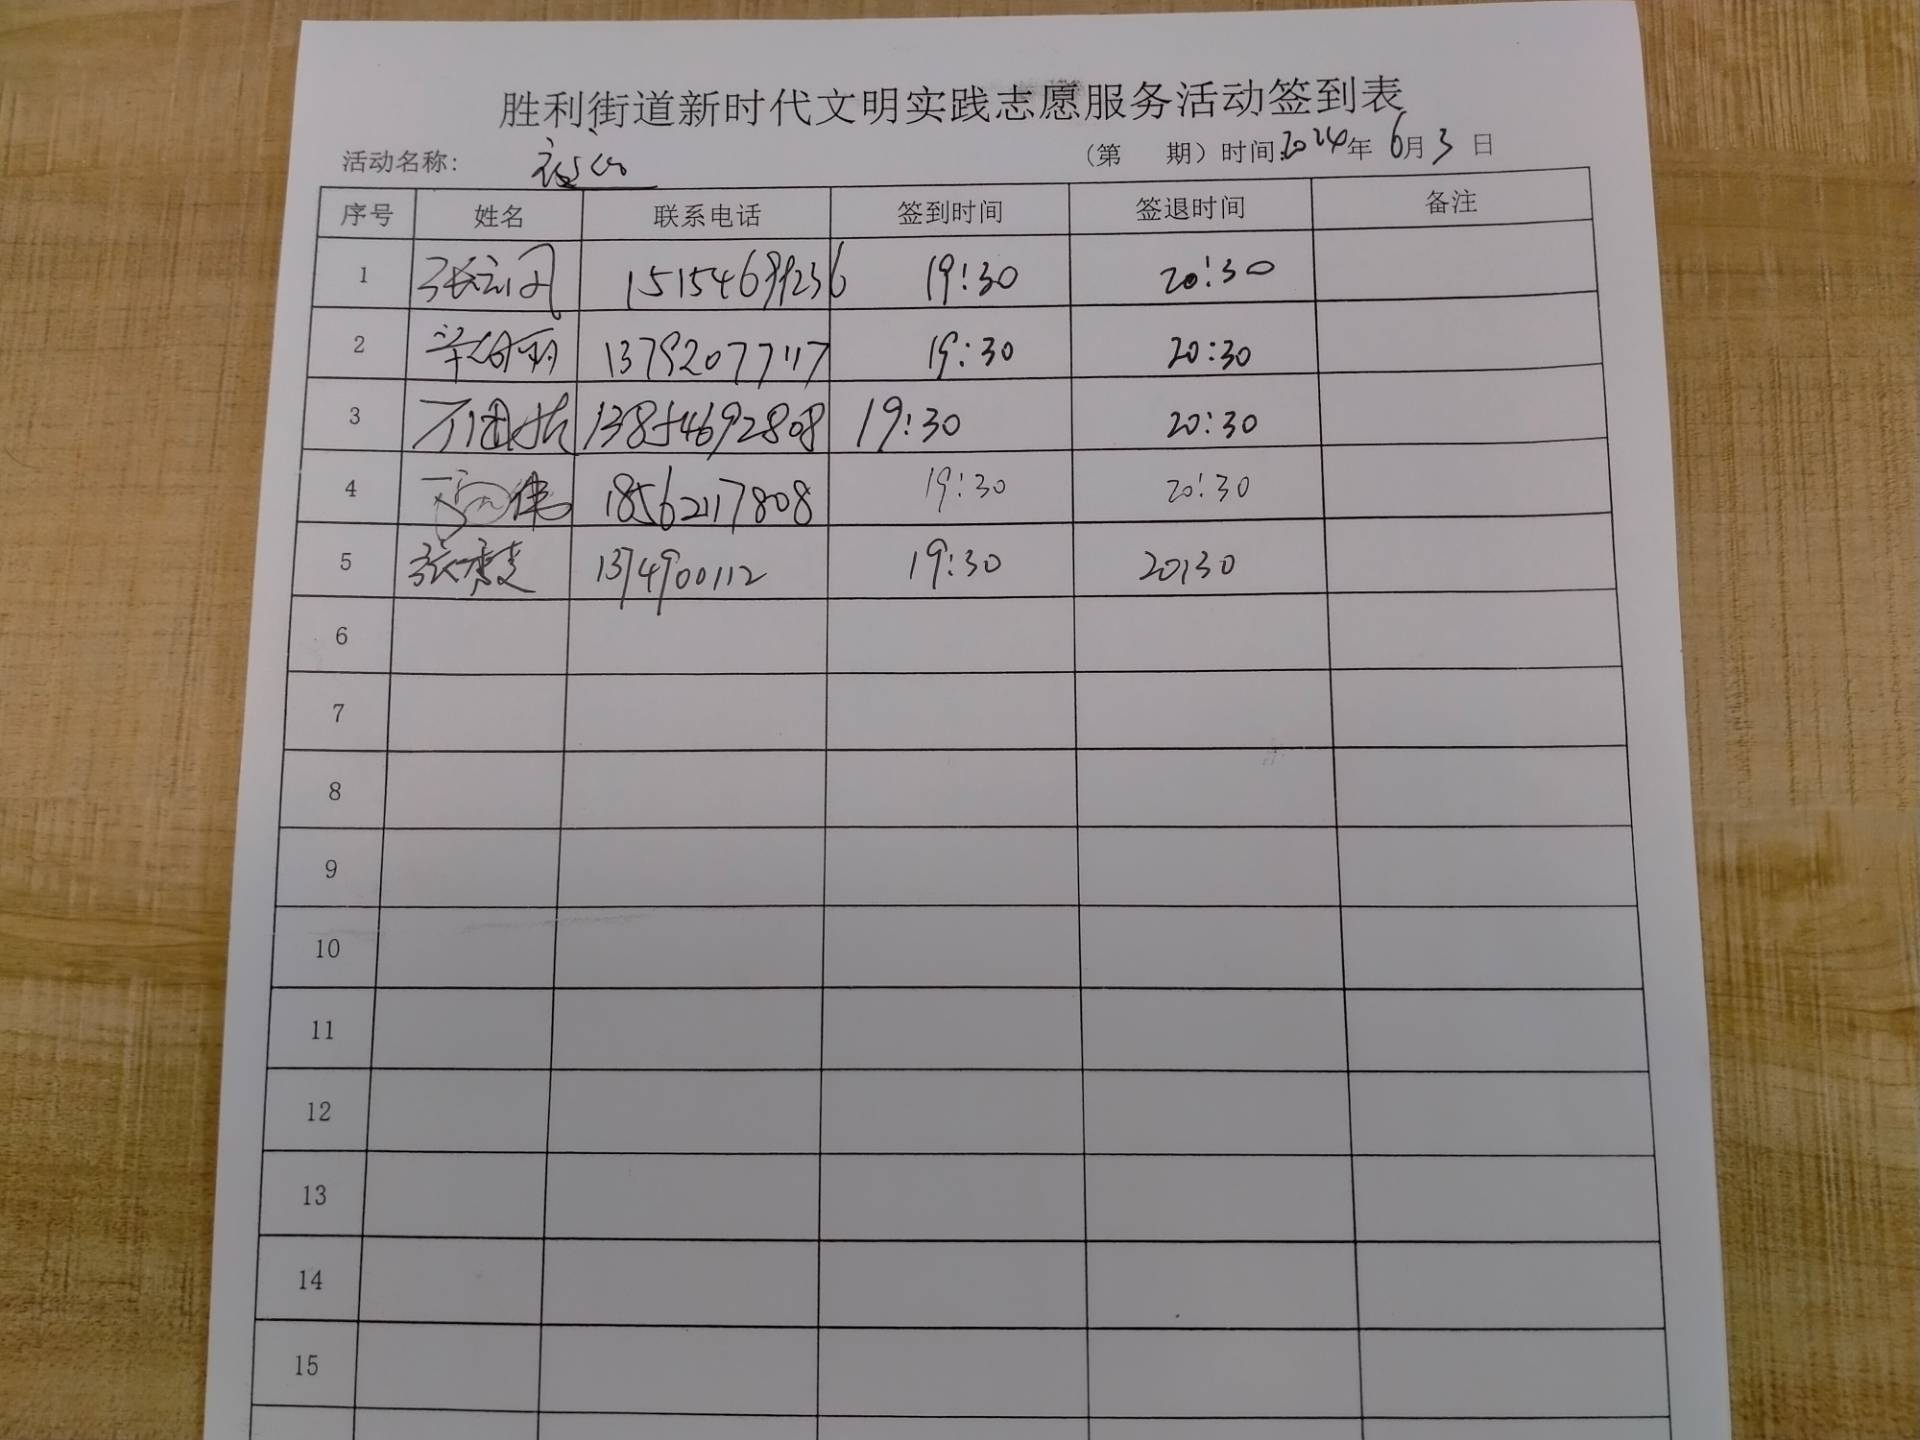 胜利街道新时代文明实践志愿服务活动签到表
活动名称: （第 期）时间:2024年 6月3 日
序号 姓名 联系电话 签到时间 签退时间 备注
1 19:30 20:30
2 13792077117 19:30 20:30
3 13854692808 19:30 20:30
4 18562117808 19:30 20:30
5 张 19:30 20:30
6
7
8
9
10
11
12
13
14
15